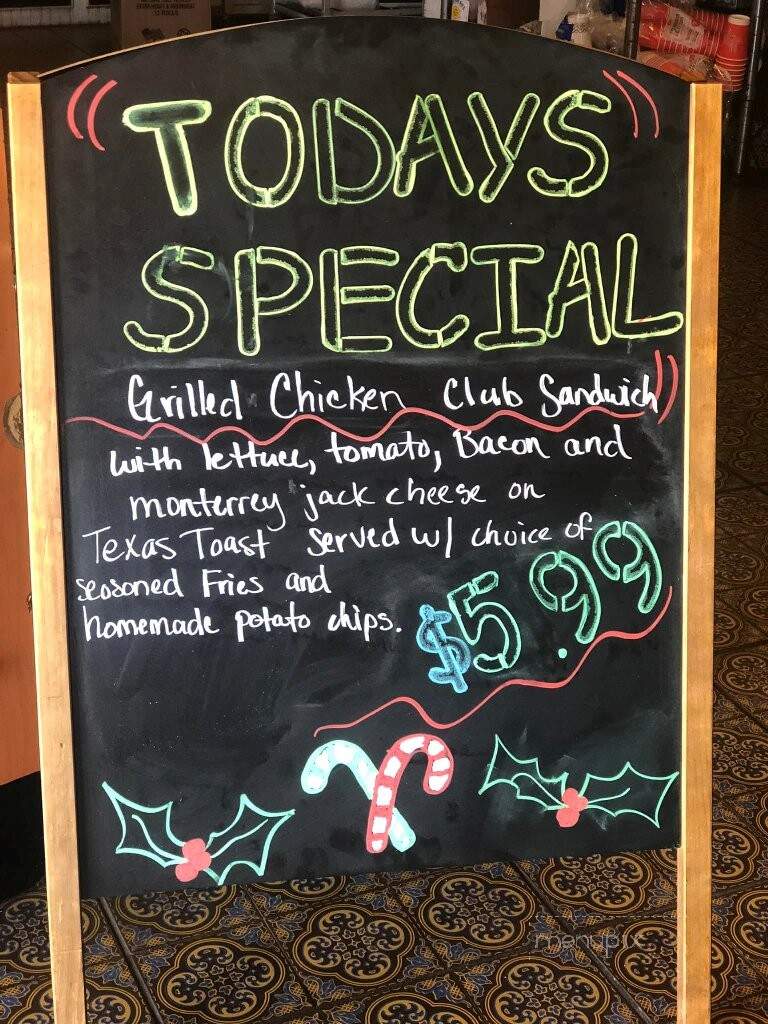 TODAYS
SPECIAL
Grilled Chicken Club Sandwich
with lettuce, tomato, Bacon and
monterrey jack cheese on
Texas Toast served w/ choice of
seasoned Fries and
homemade potato chips.
$5.99
menupix